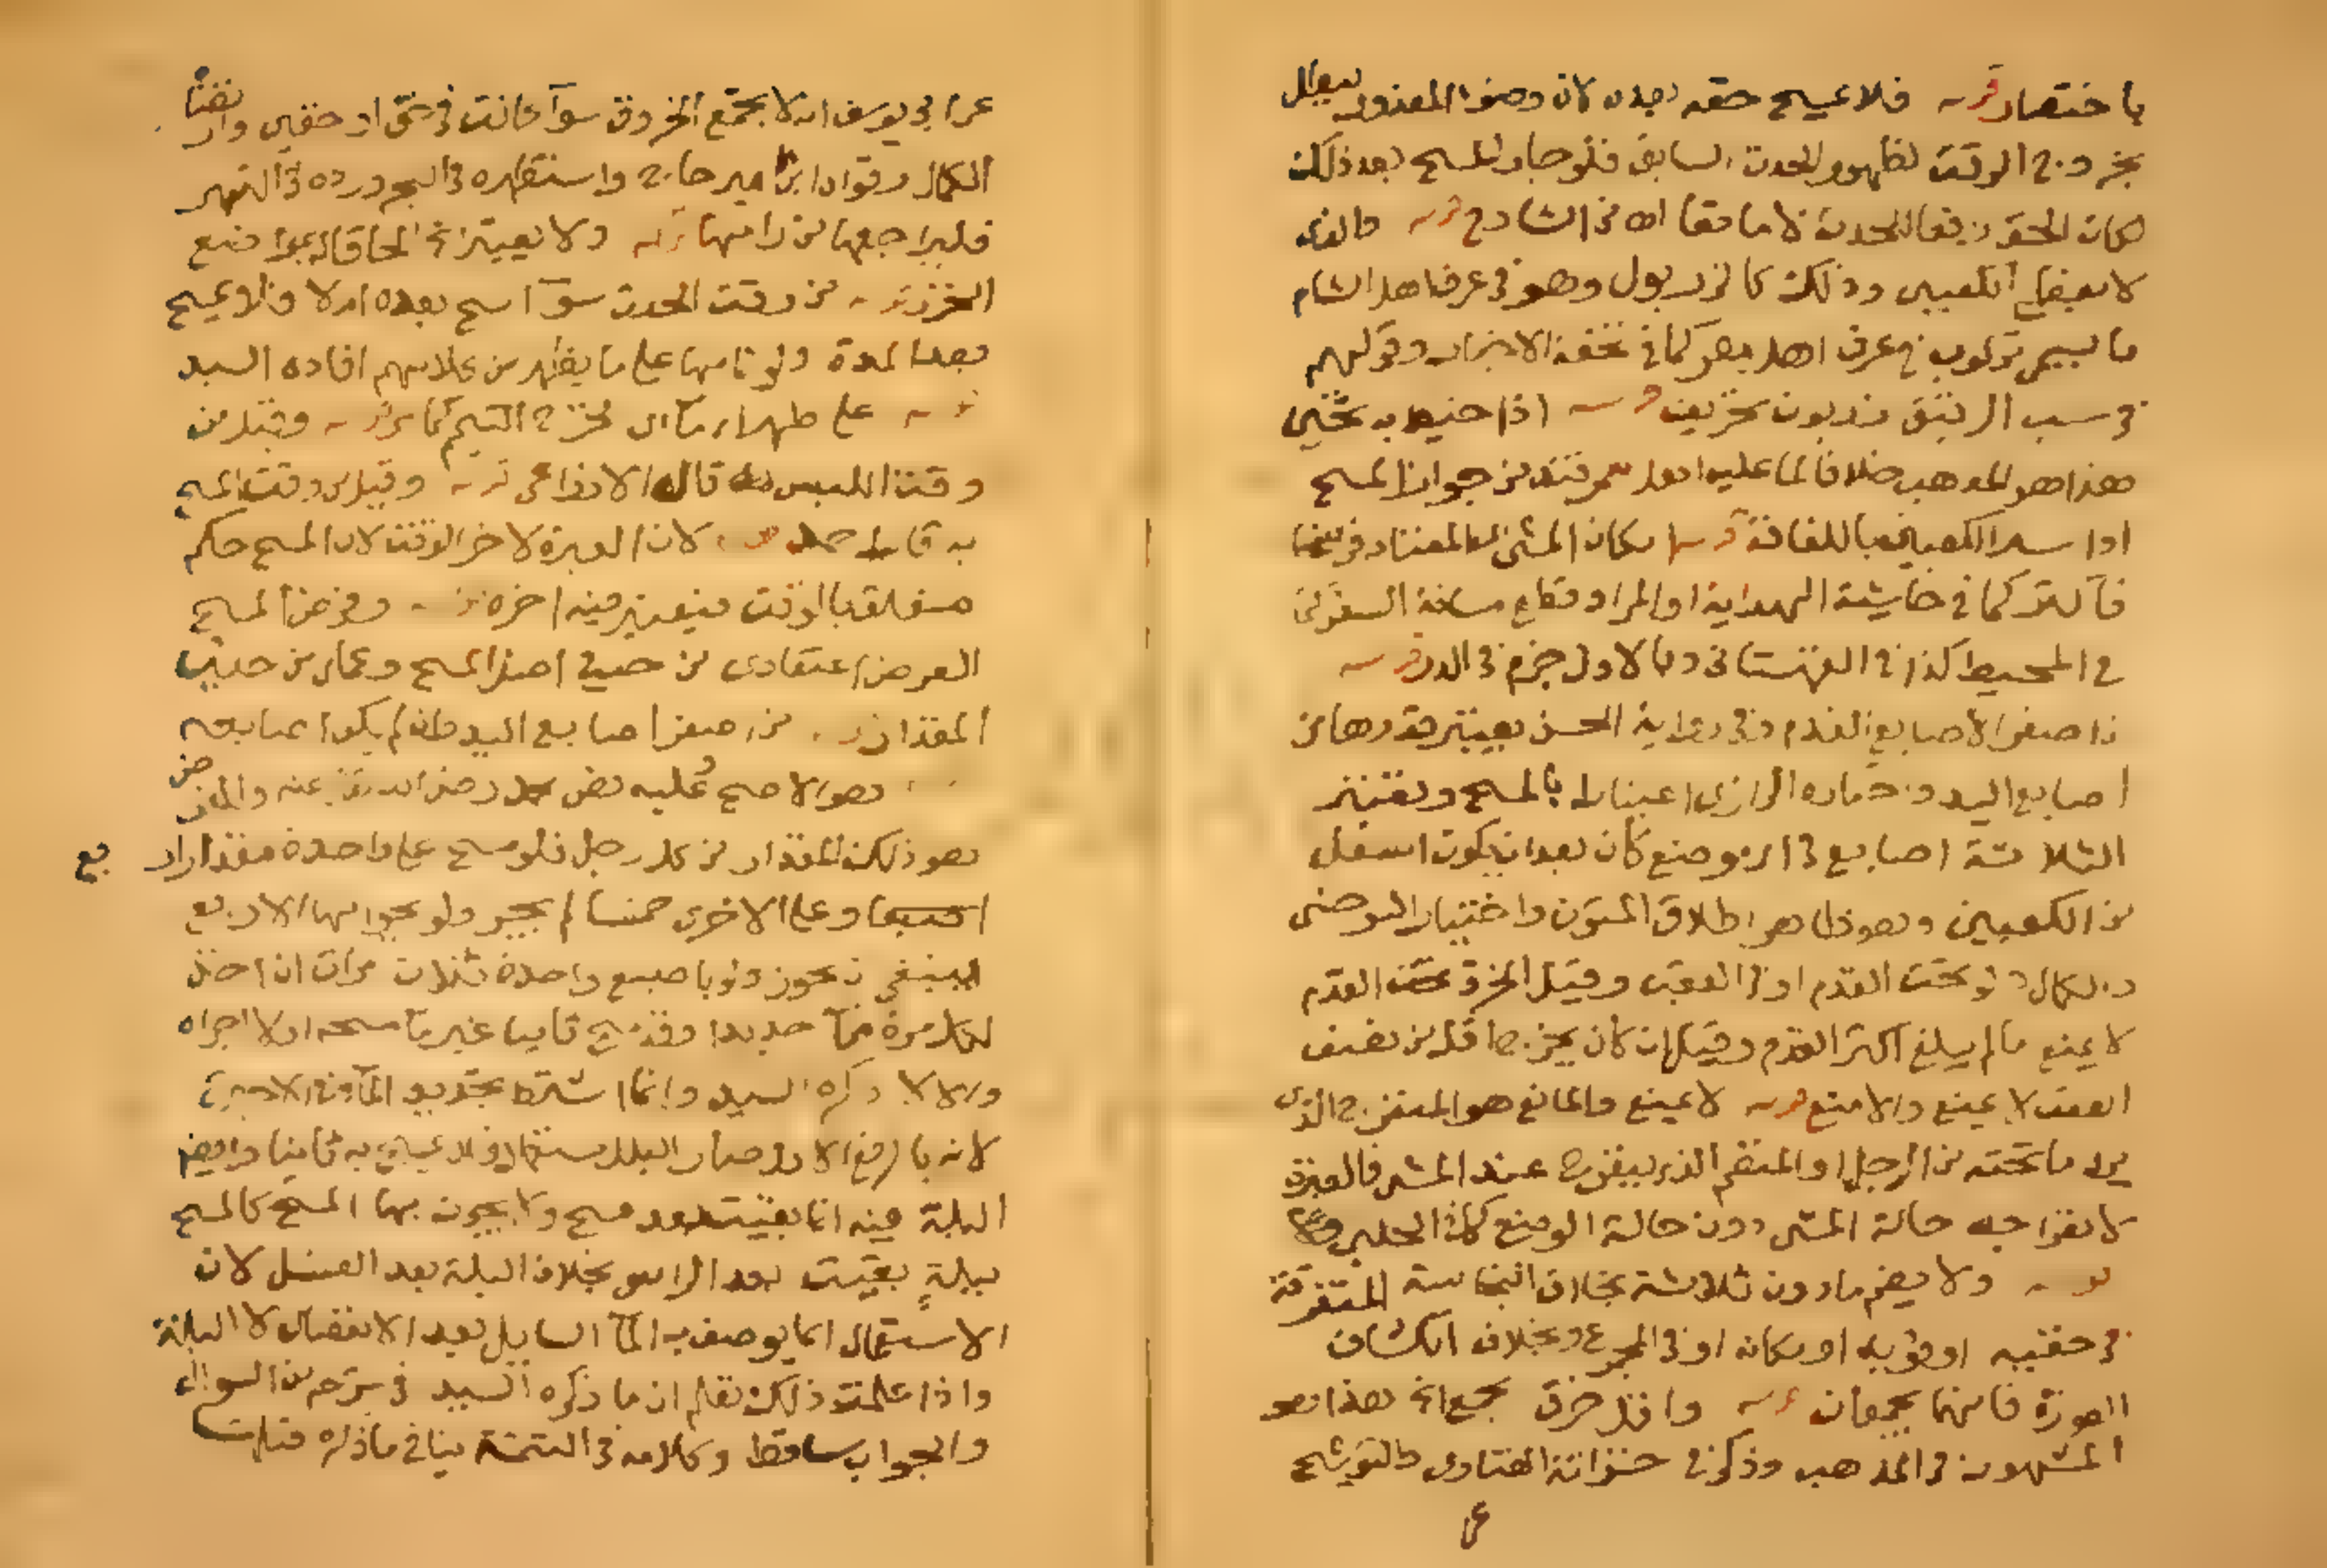 باختصار قوله فلا يمسح خفه بعده لان وضوء المعذور يبطل
بخروج الوقت لظهور الحدث السابق فلو جاز المسح بعد ذلك
لكان الخف رافعا للحدث لا مانعا اه من الشارح قوله
لا يغطي الكعبين وذلك كالزربول وهو في عرف اهل الشام
ما يسمى مركوب في عرف اهل مصر كما في تحفة الاخيار وقولهم
في سبب الرتق زربون تحريف قوله اذا خيط به تخين
هذا هو المذهب خلافا لما عليه اهل سمرقند من جواز المسح
اذا ستر الكعبين باللفافة قوله امكان المشي المعتاد فرسخا
فاكثر كما في حاشية الهداية او المراد قطع مسافة السفر كما
في المحيط كذا في القهستاني وبالاول جزم في الدرر قوله
اصغر الاصابع القدم وفي رواية الحسن يعتبر قدرها من
اصابع اليد واختاره الرازي اعتبارا بالمسح وتعتبر
الثلاثة اصابع في اي موضع كان بعد ان يكون اسفل
من الكعبين وهو ظاهر اطلاق المتون واختيار السرخسي
والكمال ولو تحت القدم او في العقب وقيل الخرق تحت القدم
لا يمنع ما لم يبلغ اكثر القدم وقيل ان كان يخرج اقل من نصف
العقب لا يمنع والا منع قوله لا يمنع والمانع هو المنفرج الذي
يرى ما تحته من الرجل او المنضم الذي ينفرج عند المشي فالعبرة
لانفراجه حالة المشي دون حالة الوضع كما في الحلبي
قوله ولا يضم مادون ثلاثة بخلاف النجاسة المتفرقة
في خفيه او ثوبه او مكانه او في المجموع وبخلاف انكشاف
العورة فانهما يجمعان قوله واقل خرق يجمع الخ هذا هو
المشهور في المذهب وذكر في خزانة الفتاوى والتوشيح
عن
عن ابي يوسف انه لا يجمع الخروق سوآ كانت في خف او خفين وارتضاه
الكمال وقواه ابن امير حاج واستظهره في البحر ورده في النهر
فليراجعها من رامهما قوله ولا يعتبر الخ الحاقا له بمواضع
الخرز قوله من وقت الحدث سوآ مسح بعده ام لا فلا يمسح
بعد المدة ولو نامها على ما يظهر من كلامهم افاده السيد
قوله على طهر تام اي مخرج التيمم كما مر قوله وقيل من
وقت اللبس قاله الاوزاعي قوله وقيل من وقت المسح
به قال احمد قوله لان العبرة لاخر الوقت لان المسح حكم
متعلق بالوقت فيعتبر فيه اخره قوله وفرض المسح
الفرض اعتقادي من حيث اصل المسح وعملي من حيث
المقدار قوله من اصغر اصابع اليد فان لم يكن اصابعه
وهو الاصح وعليه نص محمد رضي الله تعالى عنه والفرض
هو ذلك المقدار من كل رجل فلو مسح على واحدة مقدار اربع
اصبعا وعلى الاخرى خمسا لم يجز ولو بجوانبها الاربع
ينبغي ان يجوز ولو باصبع واحدة ثلاث مرات ان اخذ
لكل مرة مآ جديدا وقد مسح ثانيا غير ما مسحه اولا اجزاه
والا لا ذكره السيد وانما اشترط تجديد المآ في الاصبع
لانه بالرفع الاول صار البلل مستعملا فلا يمسح به ثانيا وايضا
البلة فيه انما بقيت بعد مسح ولا يجوز بها المسح كالمسح
ببلة بقيت بعد الراس بخلاف البلة بعد الغسل لان
الاستعمال انما يوصف به المآ السايل بعد الانفصال لا البلة
واذا علمت ذلك تعلم ان ما ذكره السيد في شرحه من السؤال
والجواب ساقط وكلامه في التتمة ينافي ما ذكره قبلها